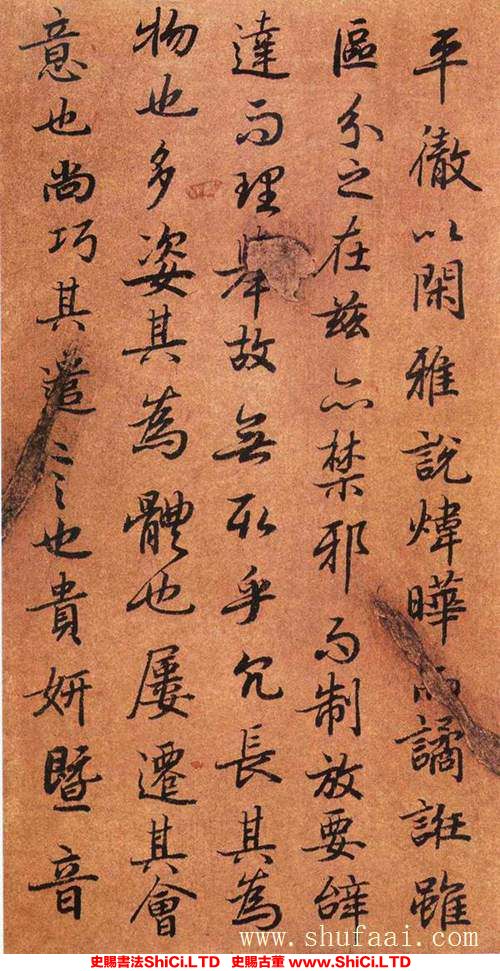 平徹以閑雅說煒曄而譎誑雖
區分之在茲亦禁邪而制放要辭
達而理舉故無取乎冗長其為
物也多姿其為體也屢遷其會
意也尚巧其遣言也貴妍暨音
www.shufaai.com
史賜書法ShiCi.LTD 史賜古董 www.SHiCi.LTD